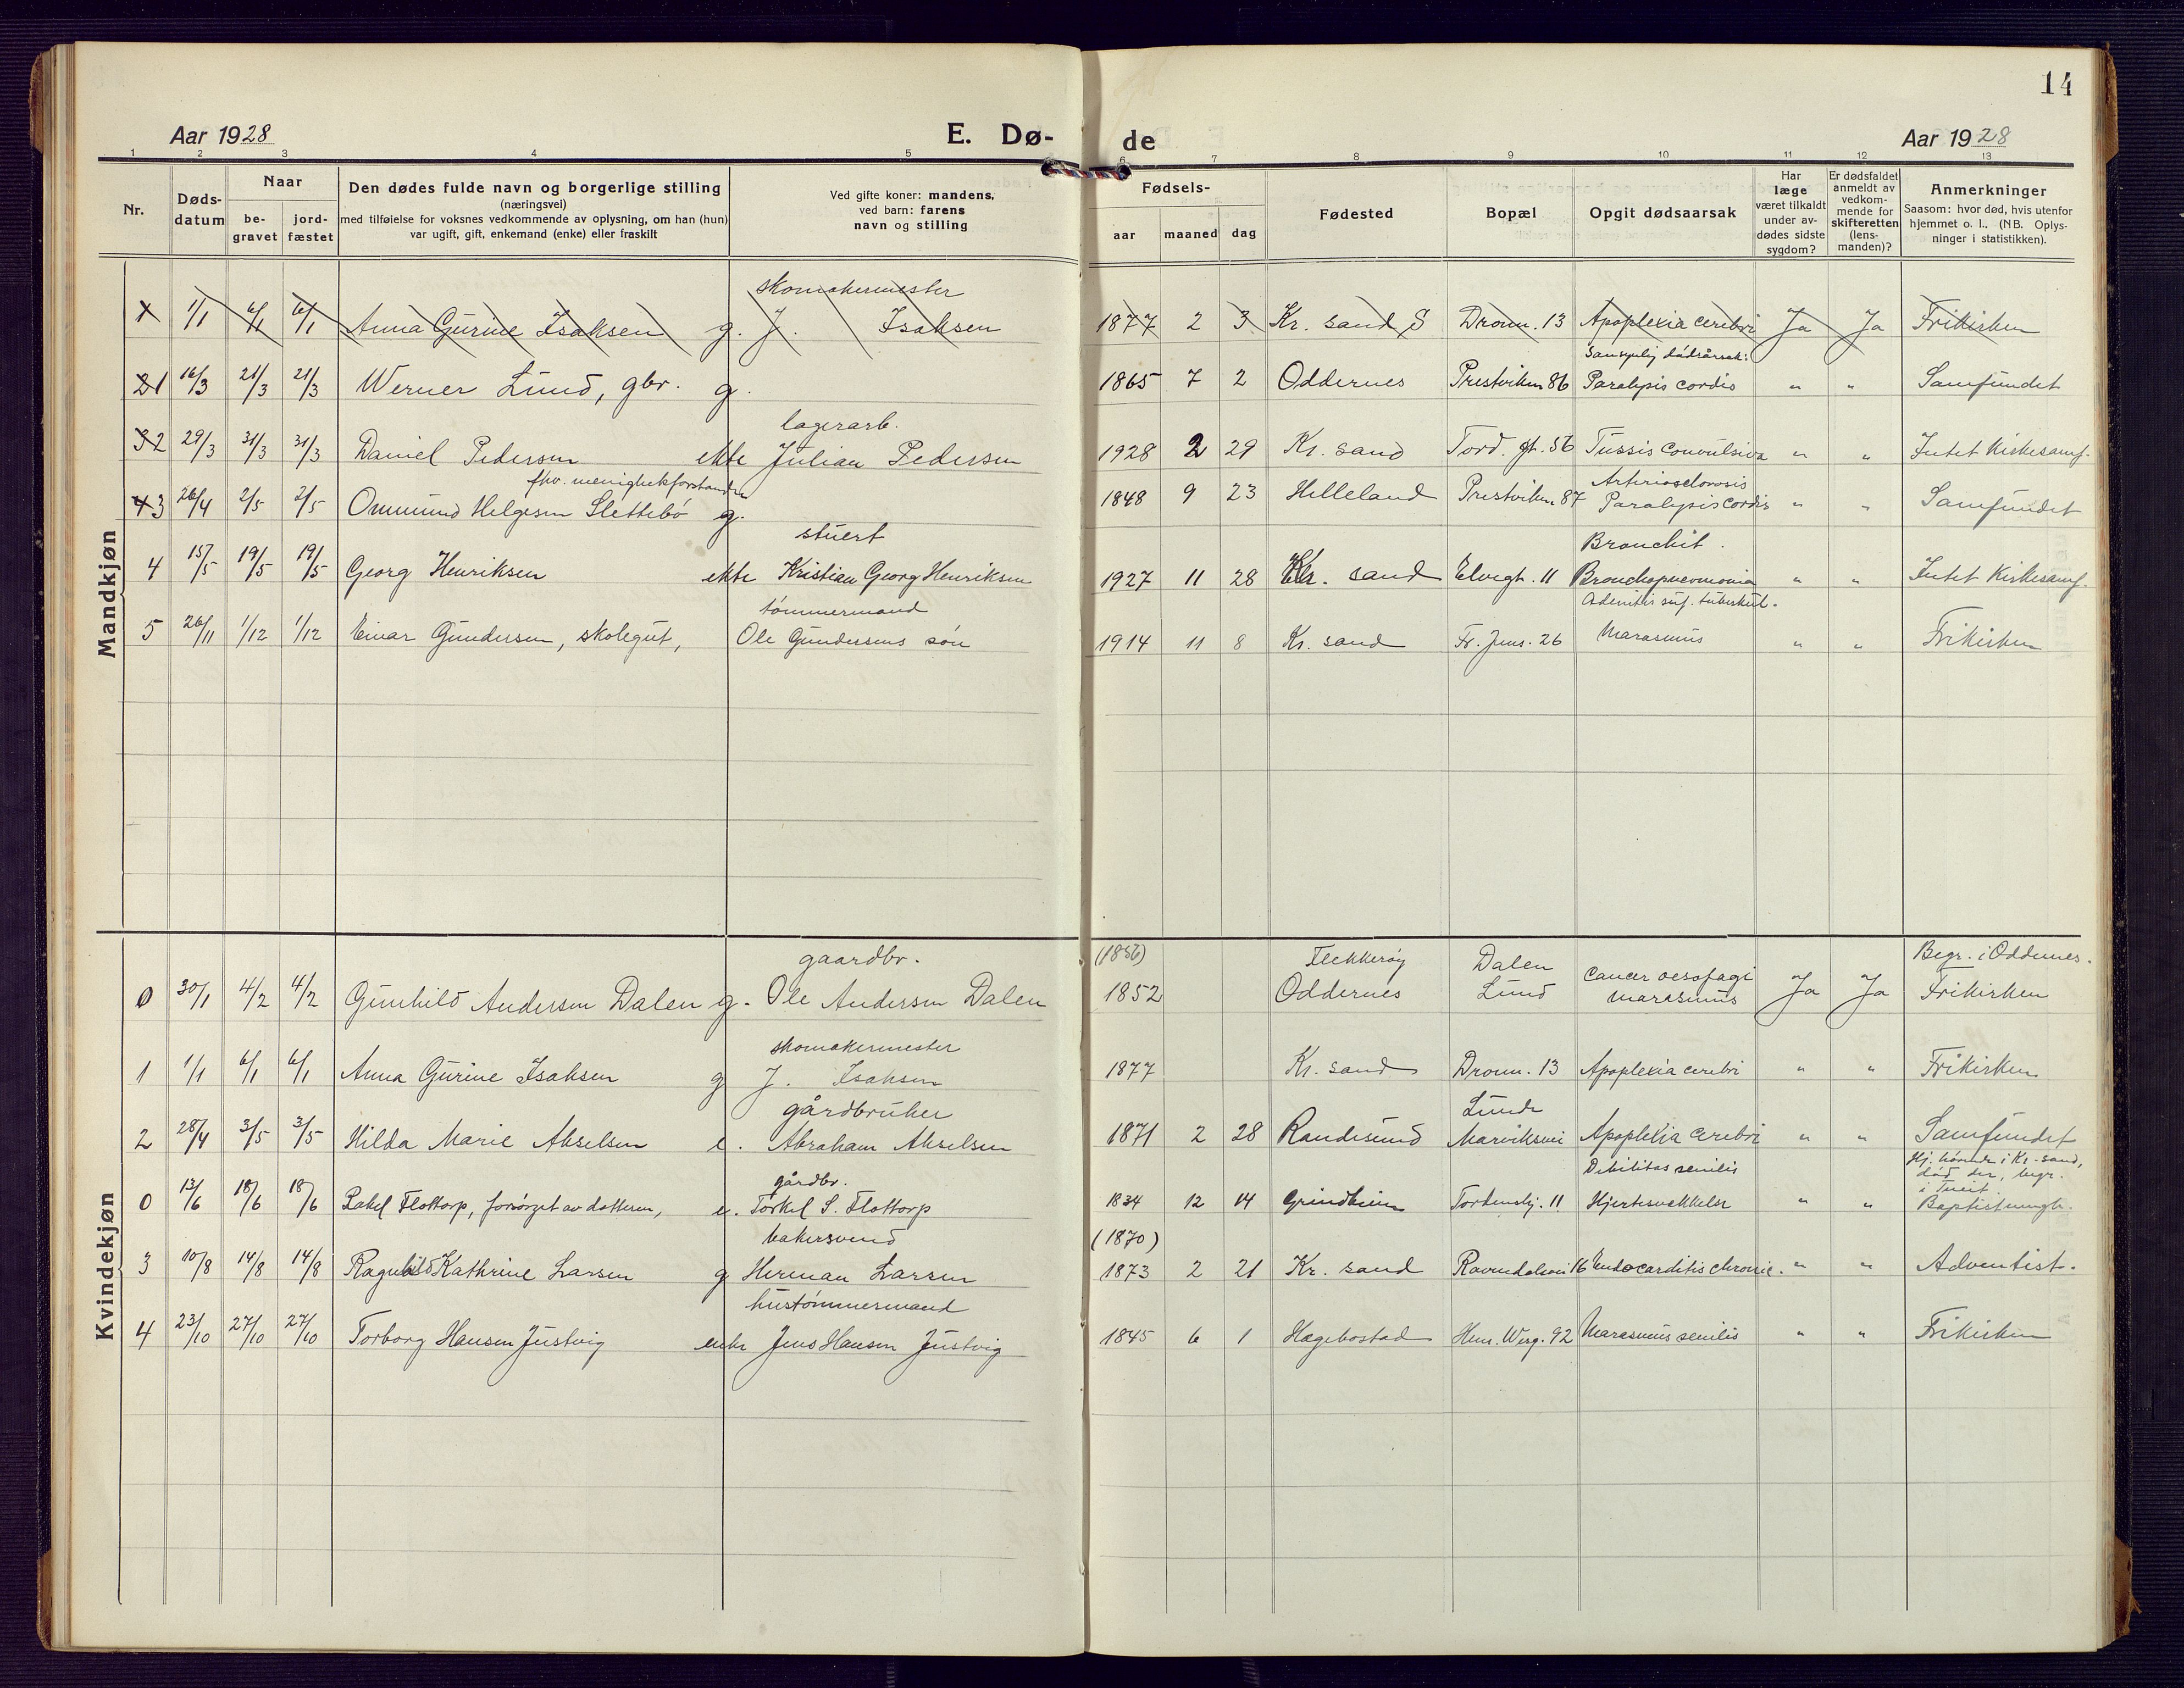 14
Aar 1928 E. Dø-de Aar 1928
1 2 3 4 5 6 7 8 9 10 11 12 13
Nr.
Døds-
datum
Naar
be-
gravet
jord-
fæstet
Den dødes fulde navn og borgerlige stilling
(næringsvei)
med tilføielse for voksnes vedkommende av oplysning, om han (hun)
var ugift, gift, enkemand (enke) eller fraskilt
Ved gifte koner: mandens,
ved barn: farens
navn og stilling
Fødsels-
aar maaned dag
Fødested
Bopæl
Opgit dødsaarsak
Har
læge
været tilkaldt
under av-
dødes sidste
sygdom?
Er dødsfaldet
anmeldt av
vedkom-
mende for
skifteretten
(lens-
manden)?
Anmerkninger
Saasom: hvor død, hvis utenfor
hjemmet o. l.. (NB. Oplys-
ninger i statistikken).
Mandkjøn
skomakermester
1 1/1 6/1 6/1 Anna Gurine Isaksen g. J. Isaksen 1877 2 3 Kr. sand S Dronn. 13 Apoplexia cerebri Ja Ja Frikirken
Sansynlig dødsårsak:
21 16/3 21/3 21/3 Werner Lund, gbr. g. 1865 7 2 Oddernes Prestviken 86 Paralysis cordis " " Samfundet
lagerarb.
32 29/3 31/3 31/3 Daniel Pedersen ekte Julian Pedersen 1928 2 29 Kr. sand Tord. gt. 56 Tussis convulsiva " " Intet Kirkesamf.
fhv. menighetsforstander Arteriosclerosis
43 26/4 2/5 2/5 Ommund Helgesen Slettebø g. 1848 9 23 Helleland Prestviken 87 Paralysis cordis " " Samfundet
stuert Bronchit.
4 15/5 19/5 19/5 Georg Henriksen ekte Kristian Georg Henriksen 1927 11 28 Kr. sand Elvegt. 11 Bronchopneumonia " " Intet Kirkesamf.
tømmermand Adenitis suf. tuberkul.
5 26/11 1/12 1/12 Einar Gundersen, skolegut, Ole Gundersens søn 1914 11 8 Kr. sand Fr. Jens. 26 Marasmus " " Frikirken
Kvindekjøn
gaardbr. (1856) Flekkerøy Dalen Cancer oesofagi Begr. i Oddernes.
0 30/1 4/2 4/2 Gunhild Andersen Dalen g. Ole Andersen Dalen 1852 Oddernes Lund marasmus Ja Ja Frikirken
skomakermester
1 1/1 6/1 6/1 Anna Gurine Isaksen g J. Isaksen 1877 Kr. sand Dronn. 13 Apoplexia cerebri " " Frikirken
gårdbruker Lunde
2 28/4 3/5 3/5 Hilda Marie Akselsen e. Abraham Akselsen 1871 2 28 Randesund Marviksvei Apoplexia cerebri " " Samfundet
gårdbr. Debilitas senilis Hj. hørende i Kr.sand,
død der, begr.
i Tveit
0 13/6 18/6 18/6 Rakel Flottorp, forsørget av datteren, e. Torkel S. Flottorp 1834 12 14 Grindheim Tordenskj. 11 Hjertesvækkelse " " Baptistmengh.
bakersvend (1870)
3 10/8 14/8 14/8 Ragnhild Kathrine Larsen g Herman Larsen 1873 2 21 Kr. sand Ravnedalsvei 16 Endocarditis chronic. " " Adventist.
hustømmermand
4 23/10 27/10 27/10 Torborg Hansen Justvig enke Jens Hansen Justvig 1845 6 1 Hægebostad Hen. Werg. 92 Marasmus senilis " " Frikirken